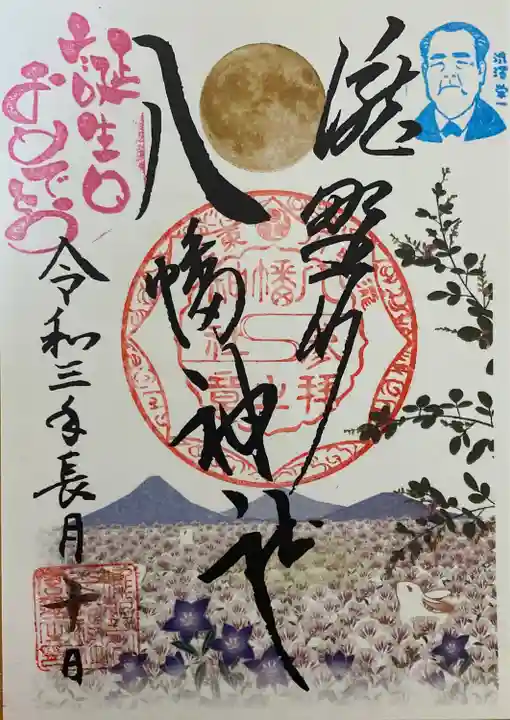 渋澤 栄一
瀧野川
八幡神社
誕生日
おめでとう
令和三年長月十日